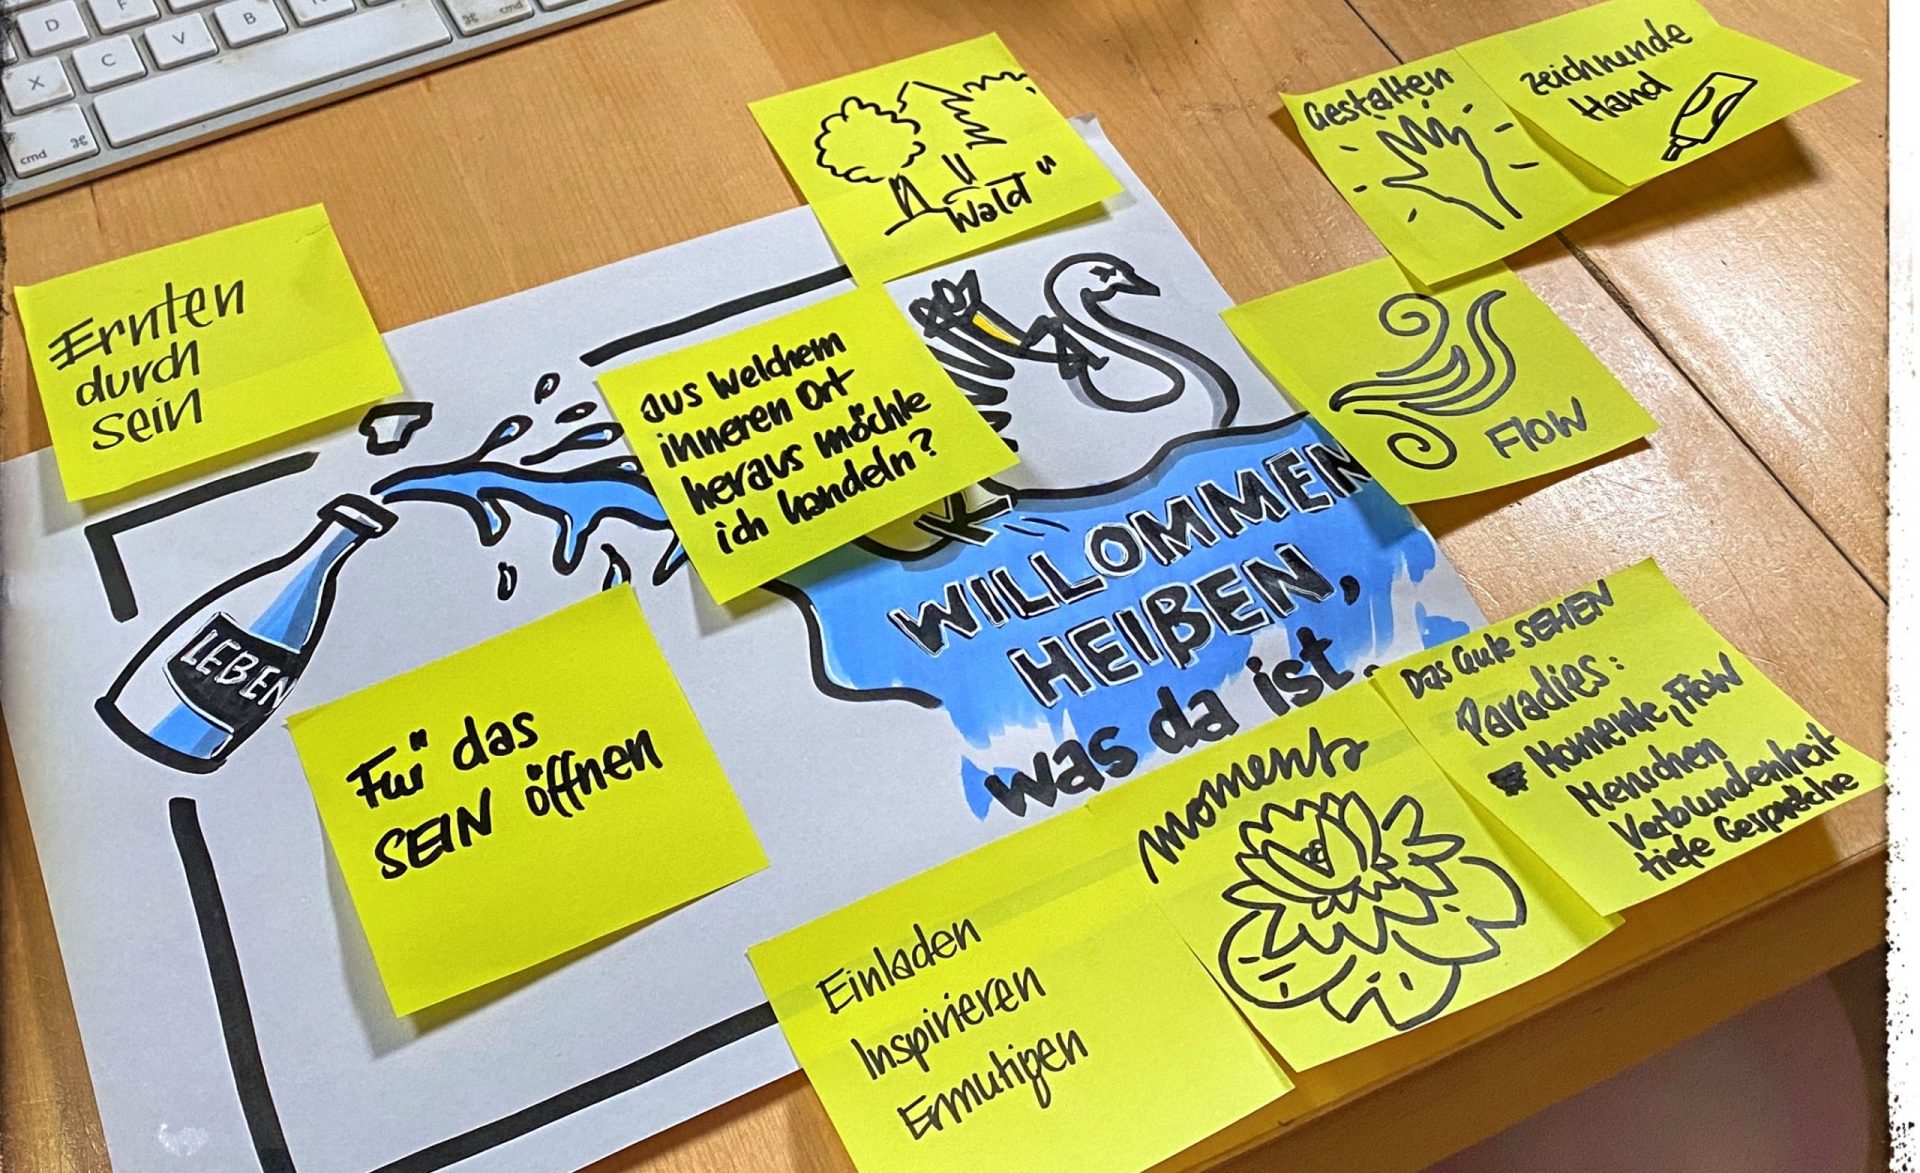 D
F
X
C
V
B
N
cmd
⌘
⌘
cmd
"Wald"
Gestalten
zeichnende
Hand
Ernten
durch
sein
Aus welchem
inneren Ort
heraus möchte
ich handeln?
Flow
LEBEN
WILLOMMEN
HEIẞEN,
was da ist.
Für das
SEIN öffnen
Das Gute SEHEN
Paradies:
Momente, Flow
Menschen
Verbundenheit
tiefe Gespräche
moments
Einladen
Inspirieren
Ermutigen